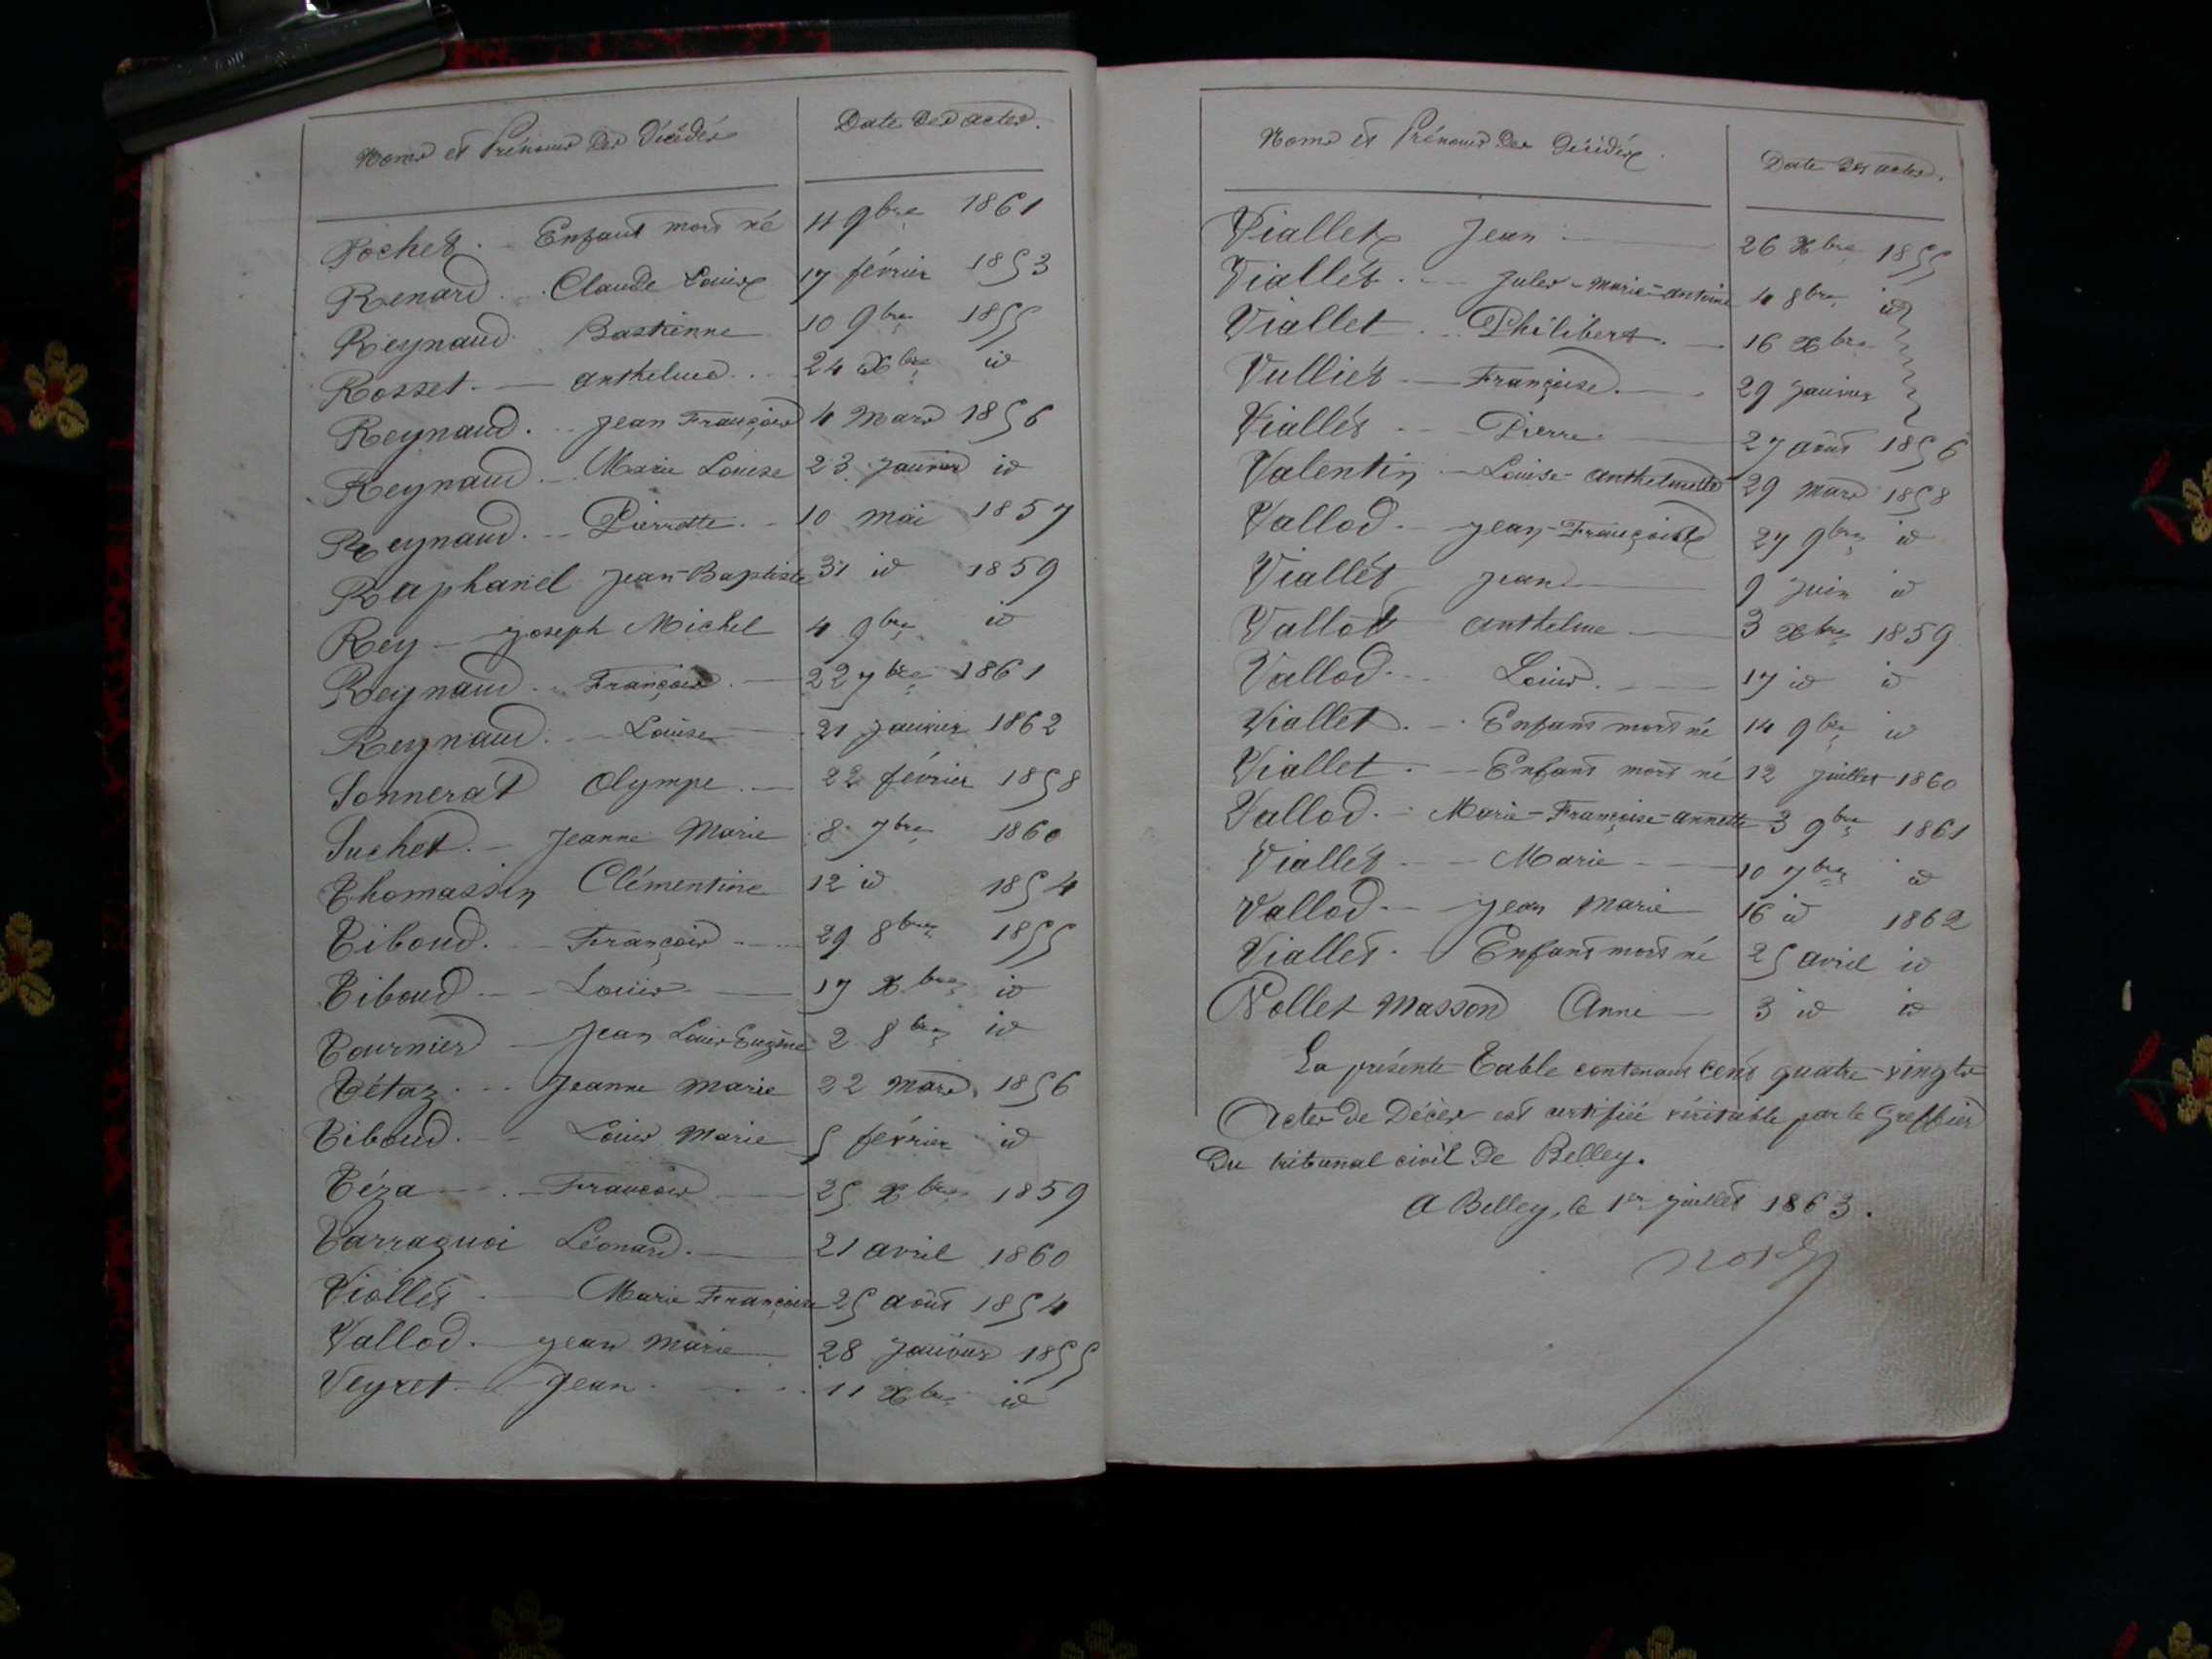 Noms et Prénoms des Décédés
Date des actes.
Pochet. Enfant mort né 11 9bre 1861
Renard Claude Louis 17 février 1853
Reynaud Bastienne 10 9bre 1855
Rosset anthelme 24 Xbre id
Reynaud. Jean François 4 Mars 1856
Reynaud Marie Louise 23 janvier id
Reynaud. Pierrette 10 mai 1857
Raphanel Jean-Baptiste 31 id 1859
Rey Joseph Michel 4 9bre id
Reynaud François 22 7bre 1861
Reynaud Louise 21 janvier 1862
Sonnerat Olympe 22 février 1858
Suchet Jeanne Marie 8 7bre 1860
Thomassin Clémentine 12 id 1854
Tiboud. François 29 8bre 1855
Tiboud Louis 17 Xbre id
Tournier Jean Louis Eugène 2 8bre id
Tétaz Jeanne Marie 22 Mars 1856
Tiboud. Louis Marie 5 février id
Téza François 25 Xbre 1859
Tarraquoi Léonard. 21 avril 1860
Viollet Marie Françoise 25 août 1854
Vallod. Jean Marie 28 janvier 1855
Veyret Jean 11 Xbre id
Noms et Prénoms des Décédés.
Date des actes.
Viallet Jean 26 Xbre 1855
Viallet. Jules-Marie-antoine 4 8bre id
Viallet Philibert. 16 Xbre
Vulliet Françoise. 29 janvier
Viallet Pierre 27 août 1856
Valentin Louise-anthelmette 29 mars 1858
Vallod Jean-François 27 9bre id
Viallet Jean 9 juin id
Vallod anthelme 3 Xbre 1859
Vallod. Louis. 17 id id
Viallet. Enfant mort né 14 9bre id
Viallet. Enfant mort né 12 juillet 1860
Vallod. Marie-Françoise-annette 3 9bre 1861
Viallet Marie 10 7bre id
Vallod Jean Marie 16 id 1862
Viallet. Enfant mort né 25 avril id
Nollet Masson Anne 3 id id
La présente Table contenant cent quatre-vingts
Actes de Décès est certifiée véritable par le Greffier
Du tribunal civil De Belley.
A Belley, le 1er juillet 1863.